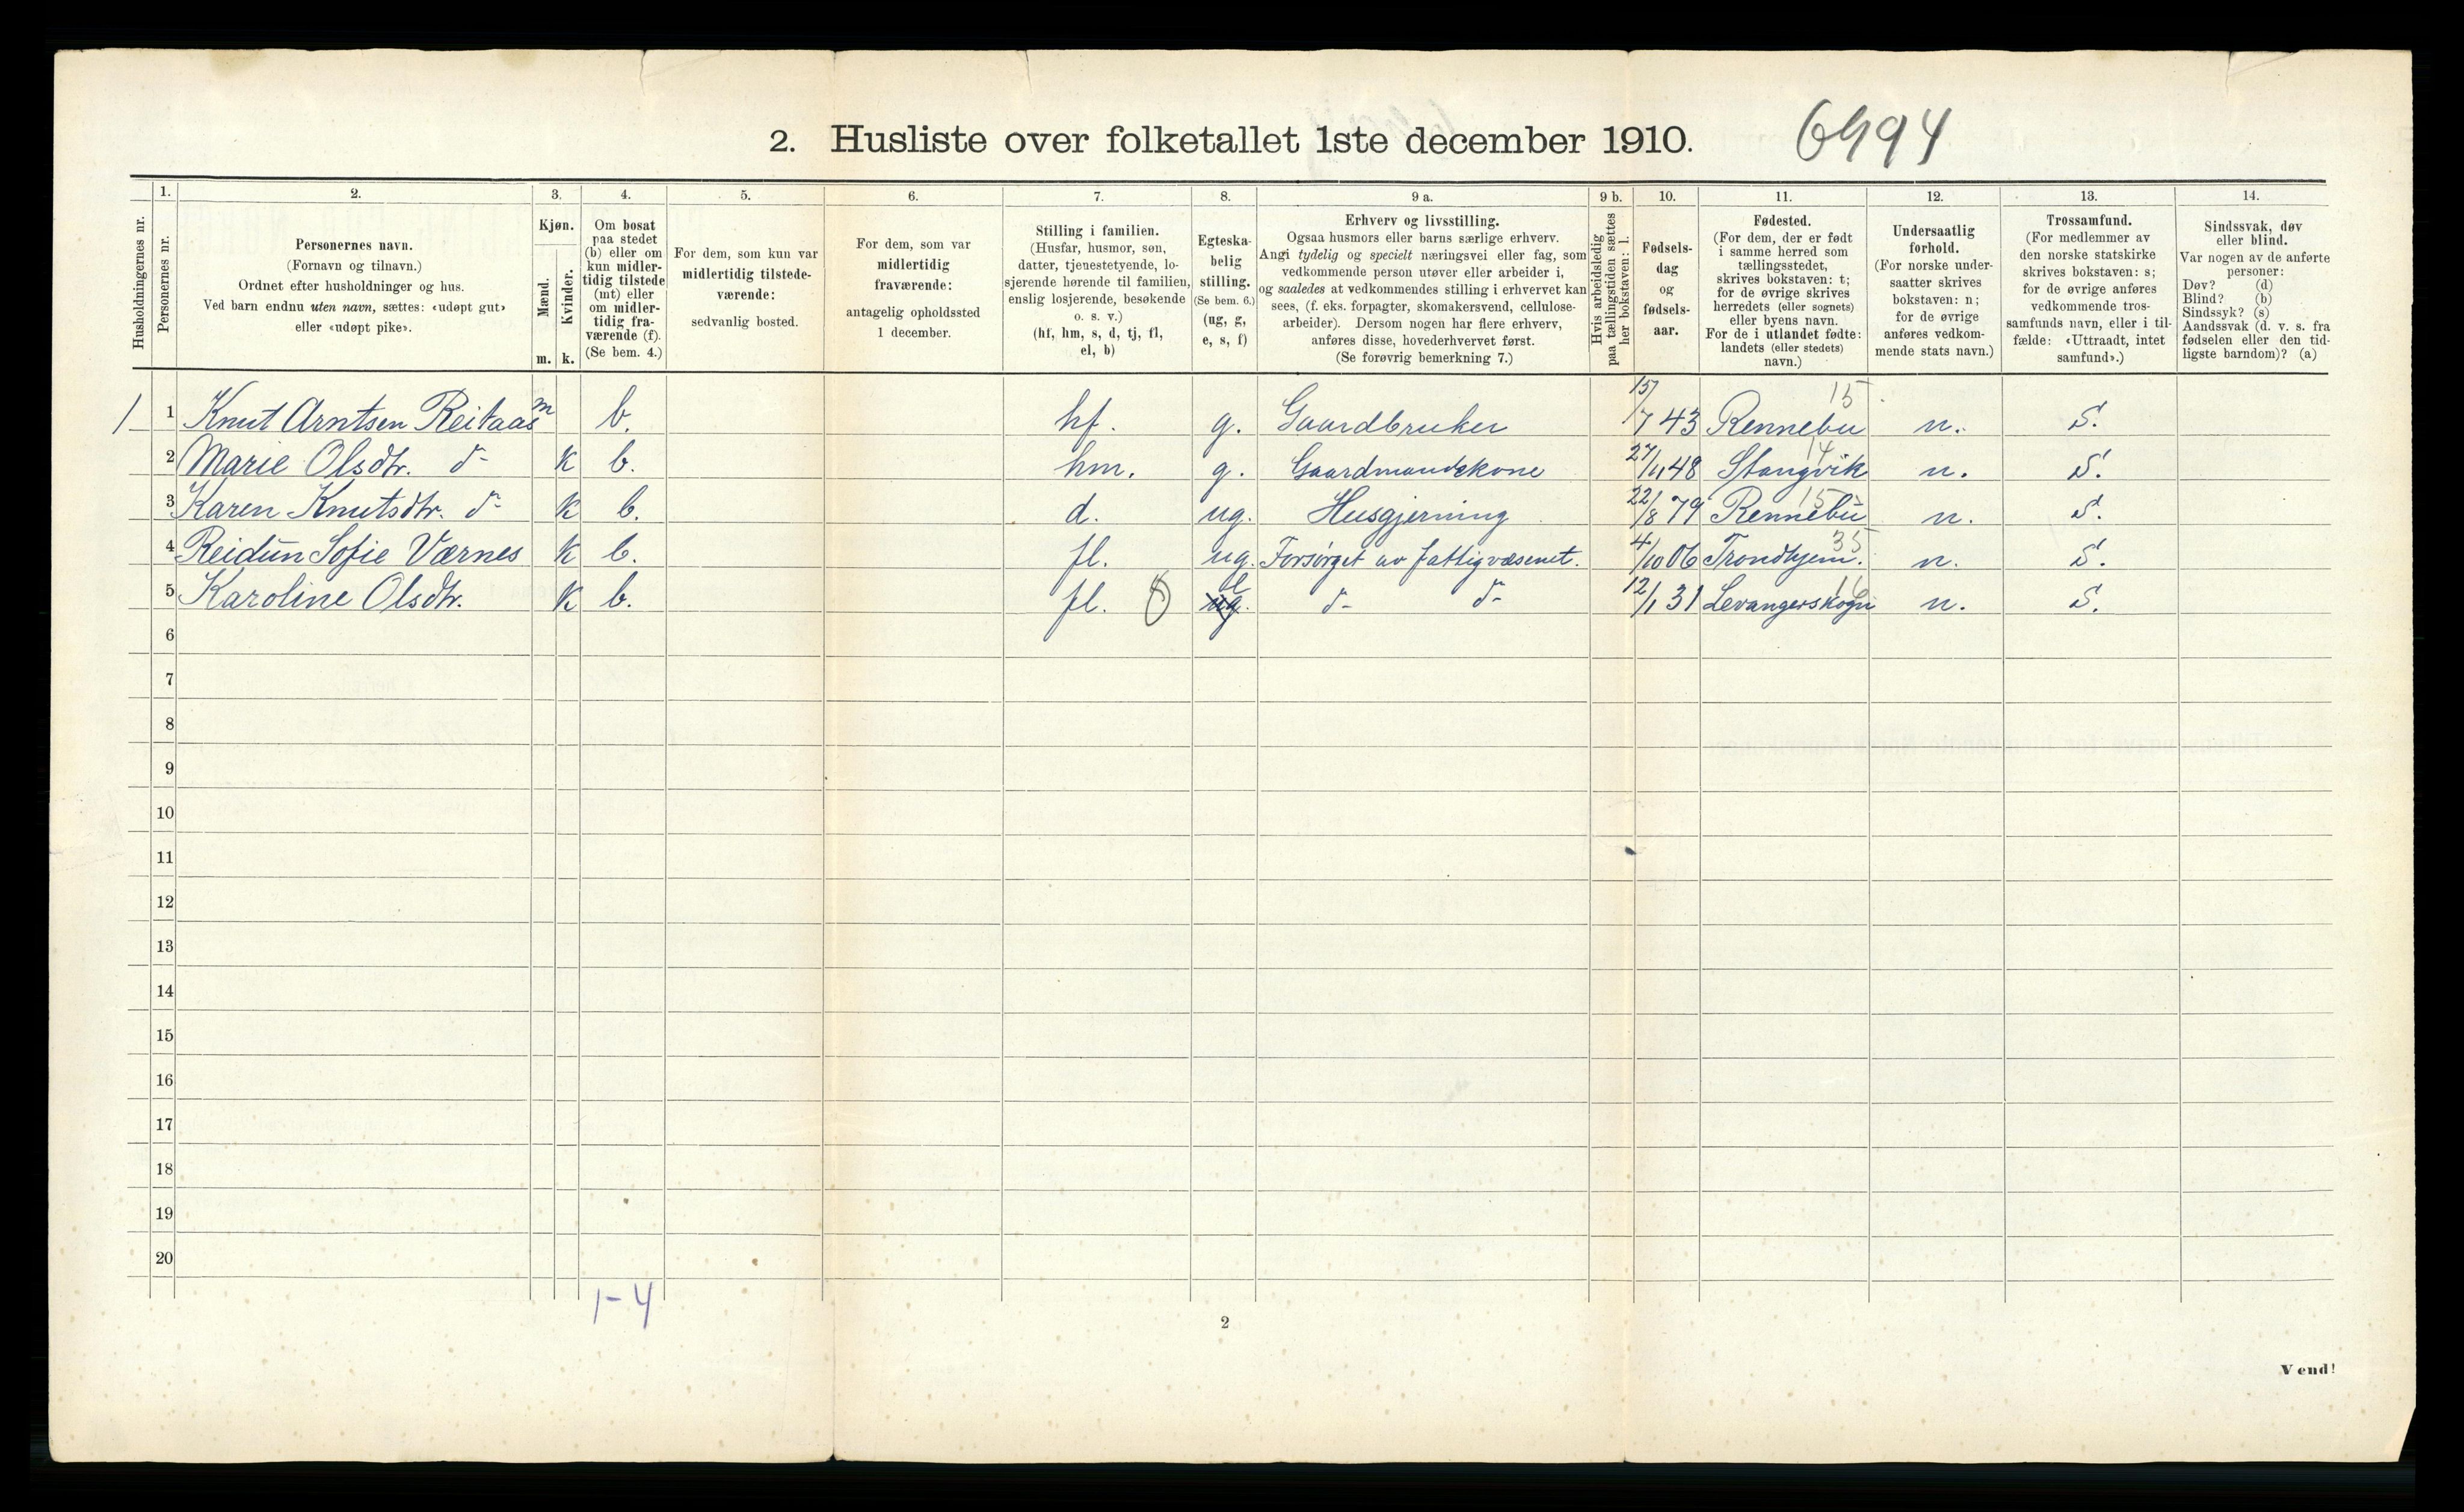 2. Husliste over folketallet 1ste december 1910. 6994
1. 2. 3. 4. 5. 6. 7. 8. 9 a. 9 b. 10. 11. 12. 13. 14.
Husholdningernes nr.
Personernes nr.
Personernes navn.
(Fornavn og tilnavn.)
Ordnet efter husholdninger og hus.
Ved barn endnu uten navn, sættes: «udøpt gut»
eller «udøpt pike».
Kjøn.
Mænd.
Kvinder.
m. k.
Om bosat
paa stedet
(b) eller om
kun midler-
tidig tilstede
(mt) eller
om midler-
tidig fra-
værende (f).
(Se bem. 4.)
For dem, som kun var
midlertidig tilstede-
værende:
sedvanlig bosted.
For dem, som var
midlertidig
fraværende:
antagelig opholdssted
1 december.
Stilling i familien.
(Husfar, husmor, søn,
datter, tjenestetyende, lo-
sjerende hørende til familien,
enslig losjerende, besøkende
o. s. v.)
(hf, hm, s, d, tj, fl,
el, b)
Egteska-
belig
stilling.
(Se bem. 6.)
(ug, g,
e, s, f)
Erhverv og livsstilling.
Ogsaa husmors eller barns særlige erhverv.
Angi tydelig og specielt næringsvei eller fag, som
vedkommende person utøver eller arbeider i,
og saaledes at vedkommendes stilling i erhvervet kan
sees, (f. eks. forpagter, skomakersvend, cellulose-
arbeider). Dersom nogen har flere erhverv,
anføres disse, hovederhvervet først.
(Se forøvrig bemerkning 7.)
Hvis arbeidsledig
paa tællingstiden sættes
her bokstaven: l.
Fødsels-
dag
og
fødsels-
aar.
Fødested.
(For dem, der er født
i samme herred som
tællingsstedet,
skrives bokstaven: t;
for de øvrige skrives
herredets (eller sognets)
eller byens navn.
For de i utlandet fødte:
landets (eller stedets)
navn.)
Undersaatlig
forhold.
(For norske under-
saatter skrives
bokstaven: n;
for de øvrige
anføres vedkom-
mende stats navn.)
Trossamfund.
(For medlemmer av
den norske statskirke
skrives bokstaven: s;
for de øvrige anføres
vedkommende tros-
samfunds navn, eller i til-
fælde: «Uttraadt, intet
samfund».)
Sindssvak, døv
eller blind.
Var nogen av de anførte
personer:
Døv? (d)
Blind? (b)
Sindssyk? (s)
Aandssvak (d. v. s. fra
fødselen eller den tid-
ligste barndom)? (a)
1 1 Knut Arntsen Reitaas m b. hf. g. Gaardbruker 15/7 43 Rennebu 15 n. S.
2 Marie Olsdtr. d- k b. hm. g. Gaardmandskone 27/11 48 Stangvik 14 n. S.
3 Karen Knutsdtr. d- k b. d. ug. Husgjerning 22/8 79 Rennebu 15 n. S.
4 Reidun Sofie Værnes k b. fl. ug. Forsørget av fattigvæsenet. 4/10 06 Trondhjem. 35 n. S.
5 Karoline Olsdtr. k b. fl. ug. e d- d- 12/1 31 Levangerskogn 16 n. S.
6
7
8
9
10
11
12
13
14
15
16
17
18
19
20
1-4
2
Vend!